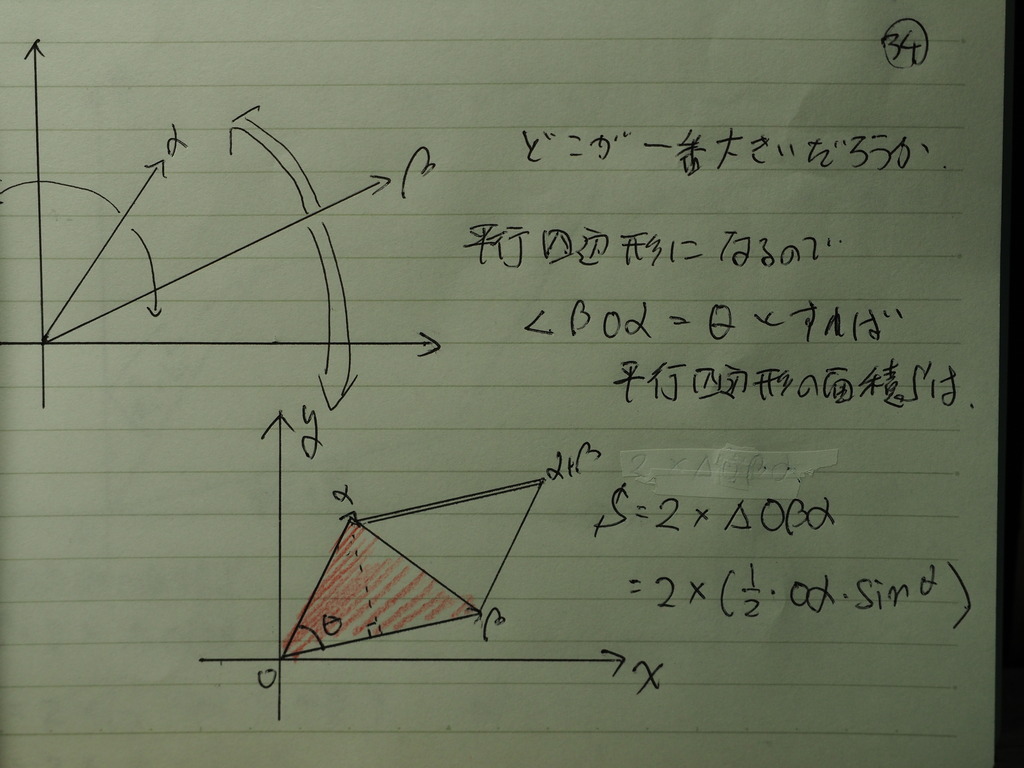 34
α
β
どこが一番大きいだろうか.
平行四辺形になるので
∠βOα = θ とすれば
平行四辺形の面積Sは.
y
α
α+β
S = 2 × △Oβα
= 2 × (1/2・Oα・sin α)
θ
β
O
x